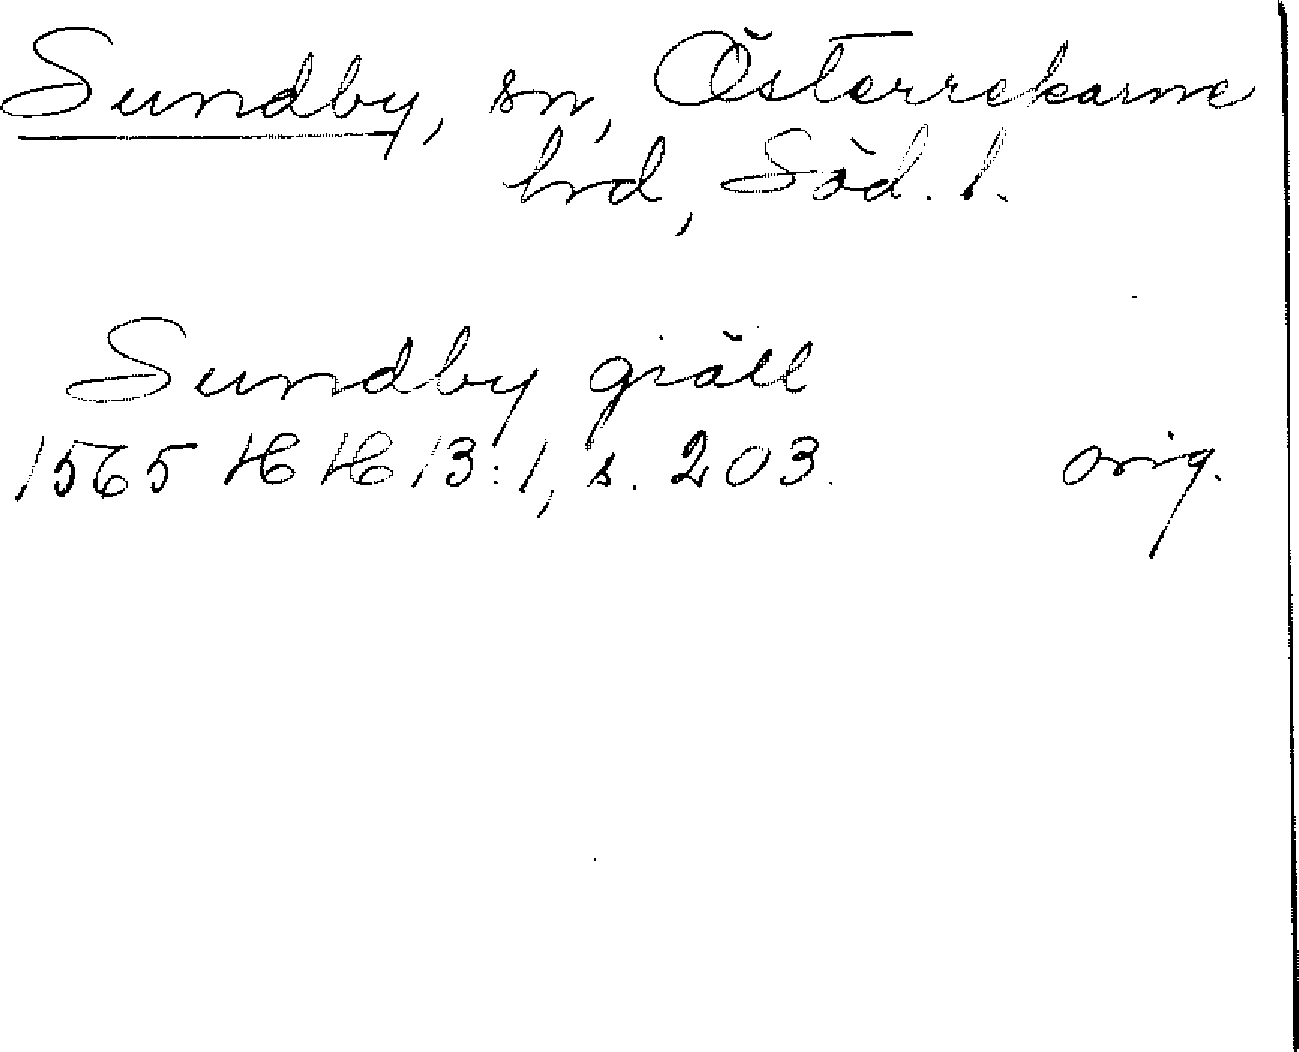 Sundby, sn, Österrekarne
hrd, Söd. l.
Sundby giäll
1565 HH 13:1, s. 203. orig.